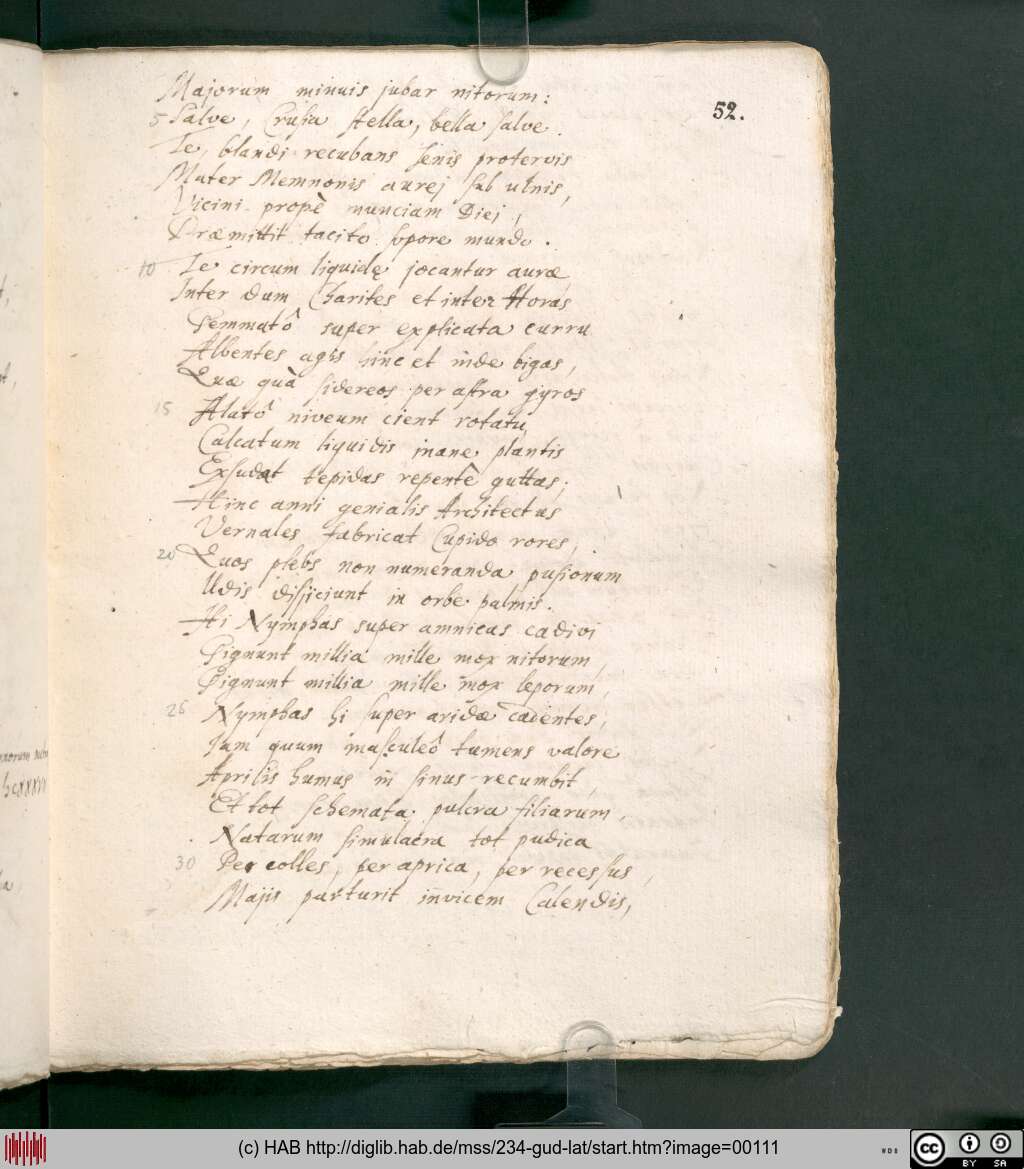 52.
Majorum minuis jubar nitorum:
5 Salve, Crusia stella, bella salve.
Te, blandi recubans senis protervis
Mater Memnonis aurej sub ulnis,
Vicini propè nunciam Diei,
Præmittit tacito sopore mundo.
10 Te circum liquidę jocantur auræ
Inter dum Charites et inter Horas
Gemmatô super explicata curru
Albentes agis hinc et inde bigas,
Quæ quà sidereos per astra gyros
15 Alatô niveum cient rotatu,
Calcatum liquidis inane plantis
Exsudat tepidas repentè guttas;
Hinc anni genialis Architectus
Vernales fabricat Cupido rores,
20 Quos plebs non numeranda pusionum
Udis dissiciunt in orbe palmis.
Hi Nymphas super amnicas cadivi
Gignunt millia mille mox nitorum,
Gignunt millia mille mox leporum,
25 Nymphas hi super aridæ cadentes,
Jam quum masculeô tumens valore
Aprilis humus in sinus recumbit,
Et tot schemata pulcra filiarum,
Natarum simulacra tot pudica
30 Per colles, per aprica, per recessus,
Majis parturit invicem Calendis,
(c) HAB http://diglib.hab.de/mss/234-gud-lat/start.htm?image=00111
cc BY SA